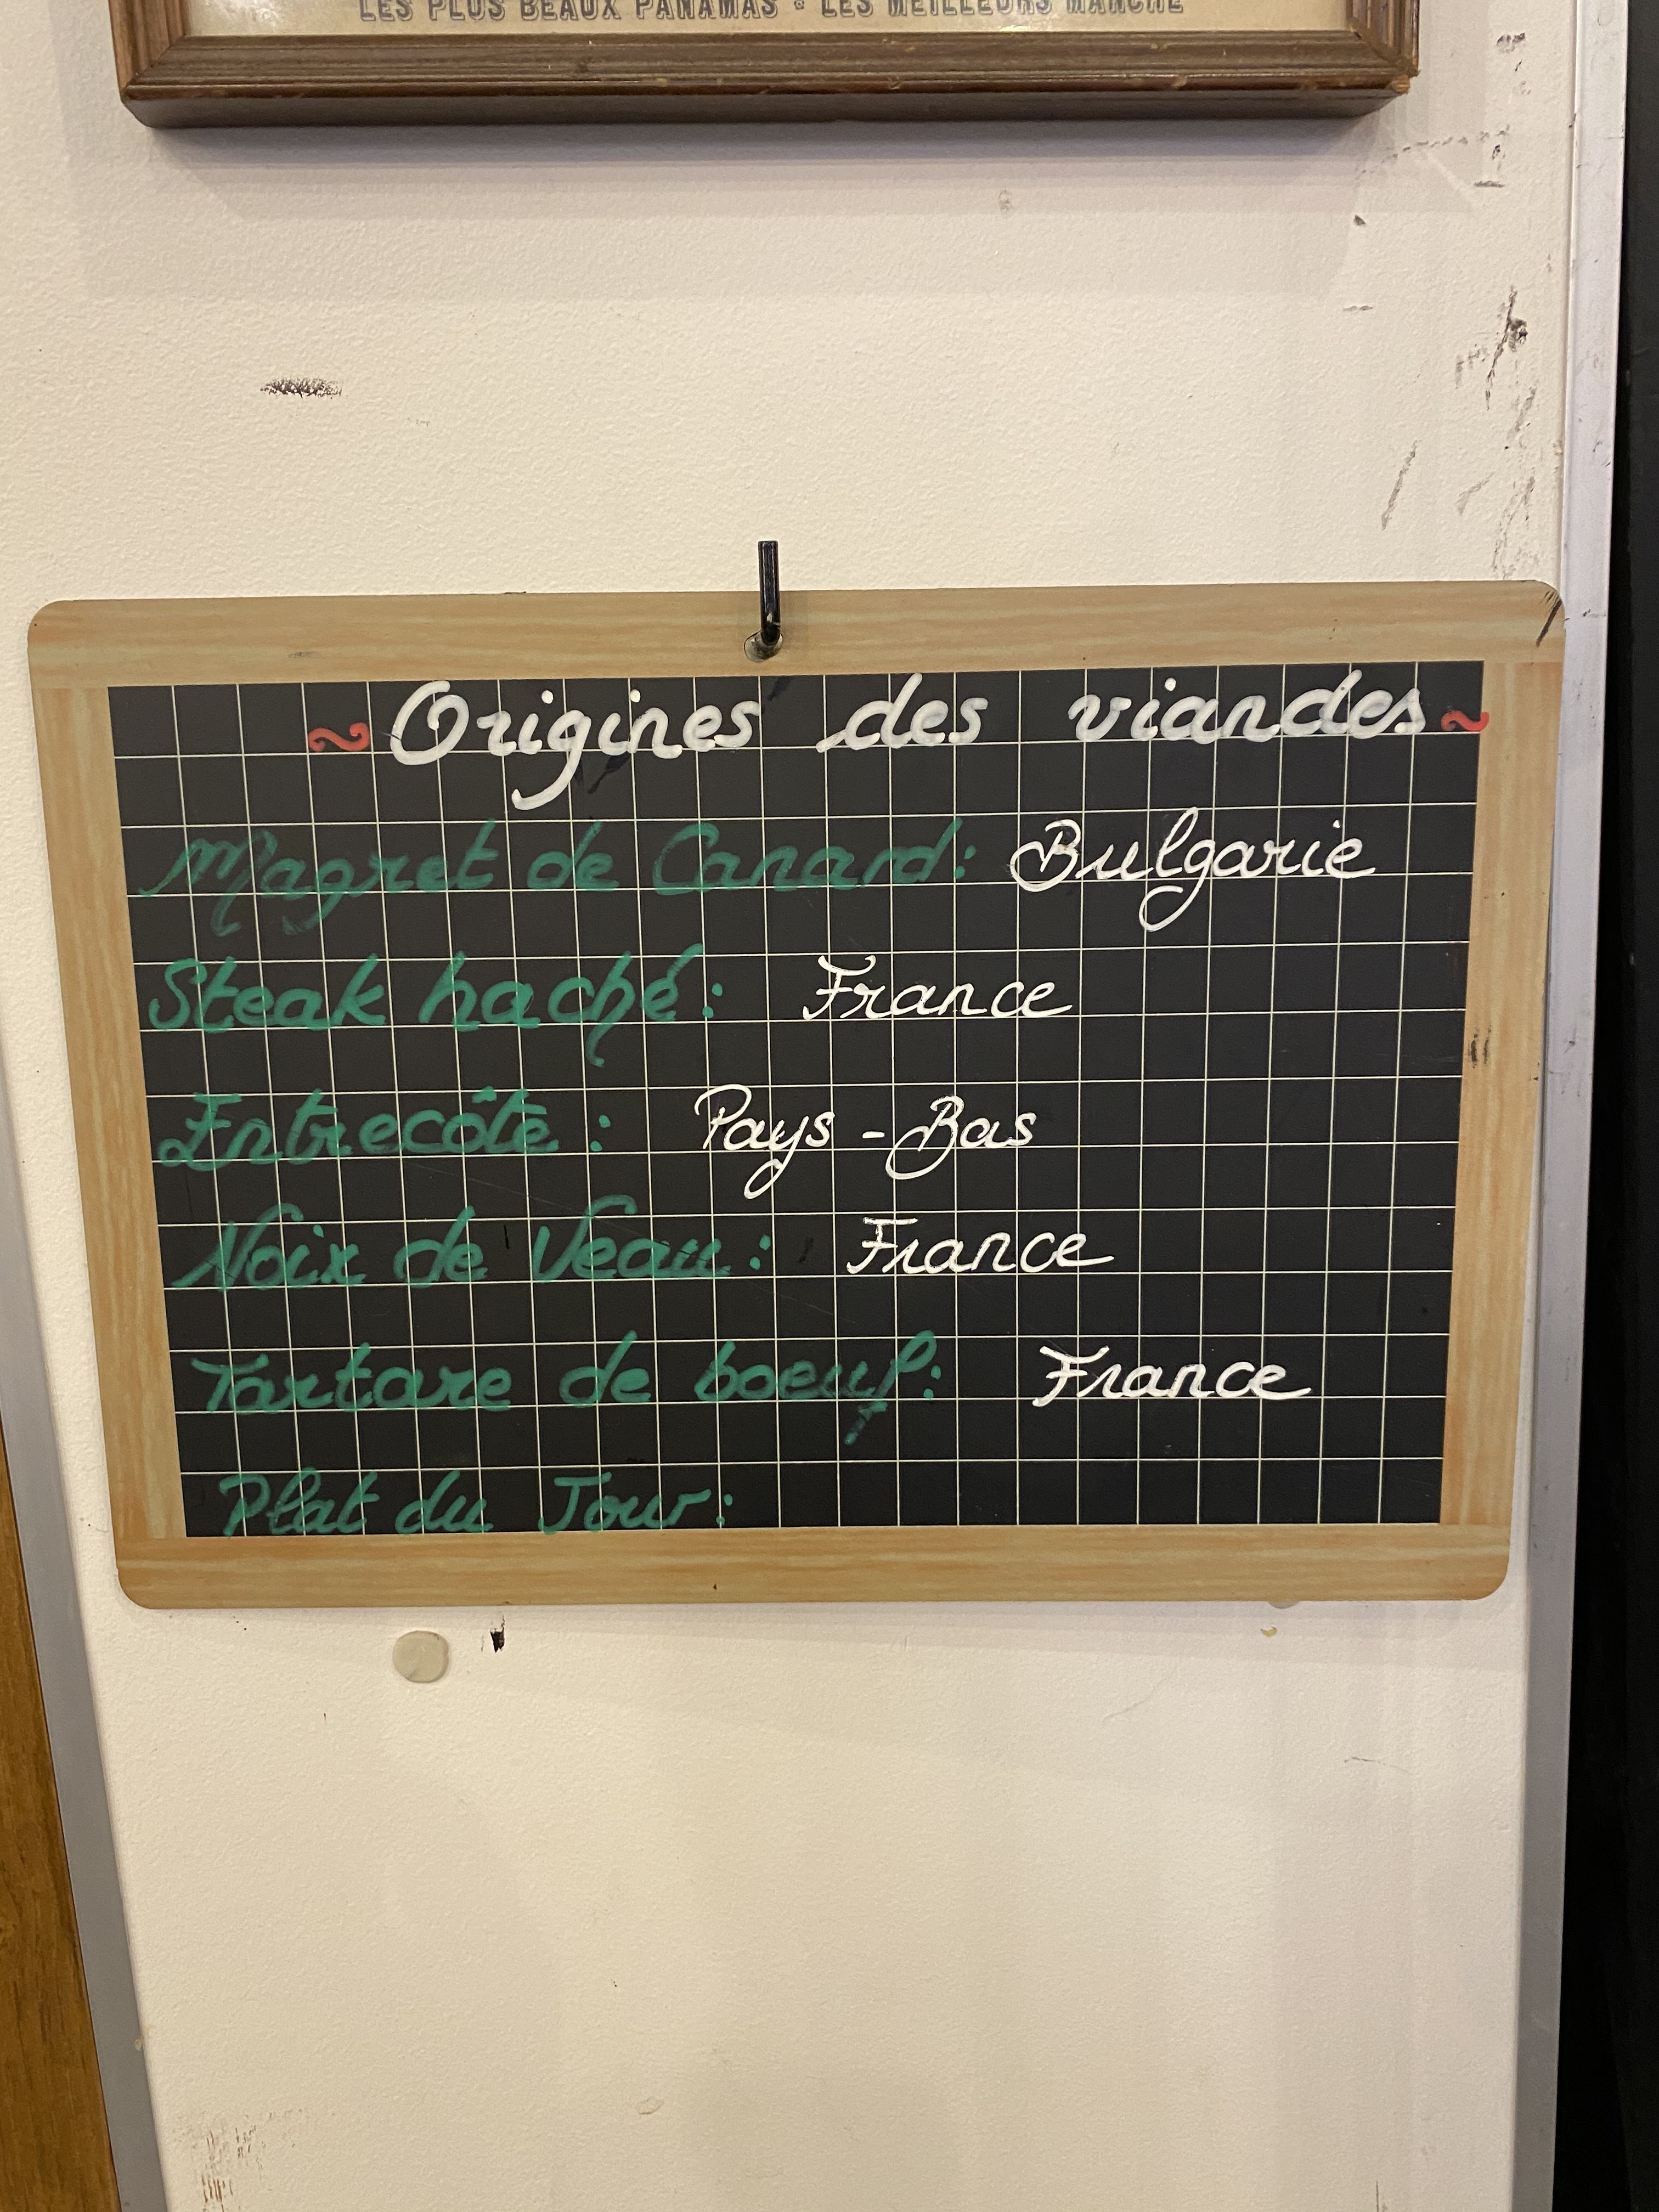 LES PLUS BEAUX PANAMAS • LES MEILLEURS MANCHE
~ Origines des viandes ~
Magret de Canard: Bulgarie
Steak haché: France
Entrecôte: Pays-Bas
Noix de Veau: France
Tartare de boeuf: France
Plat du Jour: